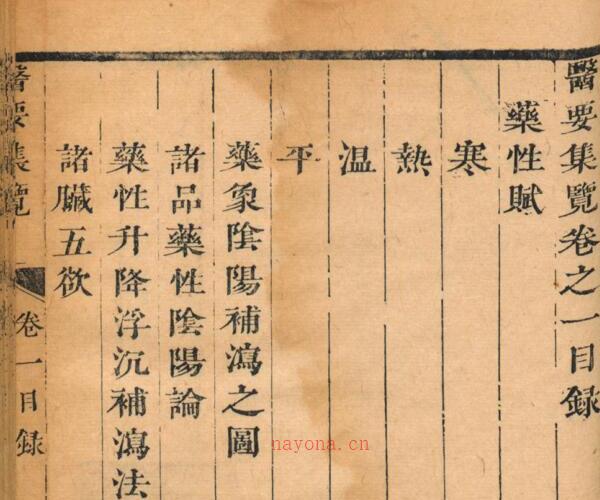 醫要集覽卷之一目録
藥性賦
寒
熱
温
平
藥象陰陽補瀉之圖
諸品藥性陰陽論
藥性升降浮沉補瀉法
諸臟五欲
醫要集覽
卷一目録
nayona.cn